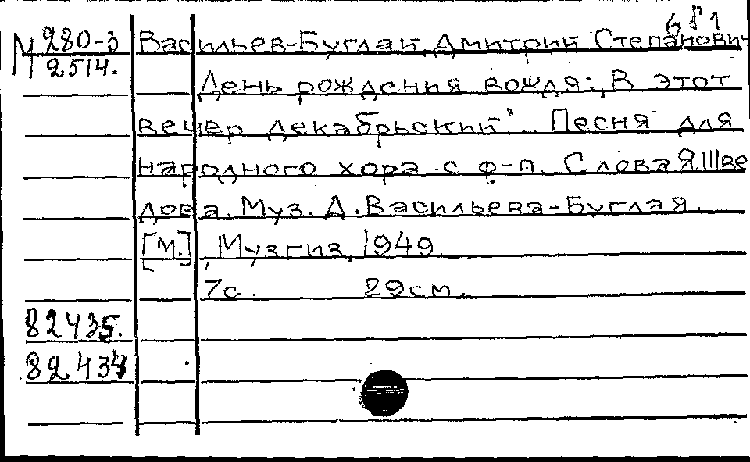 681
М 280-3 Васильев-Буглай, Дмитрий Степанович
2514.
День рождения вождя: „В этот
вечер декабрьский". Песня для
народного хора с ф-п. Слова Я.Шве
дова. Муз. Д. Васильева-Буглая.
[М.], Музгиз, 1949
7с. 29см.
82435.
82434